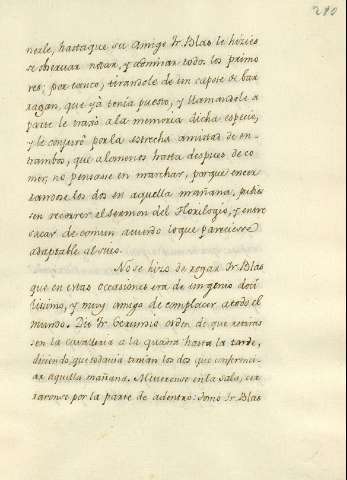 280
nerle, hasta que su Amigo Fr. Blas le hiziesse
observar, notar, y admirar todos los primo
res; por tanto, tirandole de un capote de bar
ragan, que yà tenía puesto, y llamandole a
parte le traxò a la memoria dicha especie,
y le conjurò por la estrecha amistad de en-
trambos, que a lo menos hasta despues de co-
mer, no pensase en marchar, porque encer
raronse los dos en aquella mañana, pudies
sen recorrer el sermon del Florilogio, y entre
sacar de comun acuerdo lo que pareciesse
adaptable al suio.
No se hizo de rogar Fr. Blas
que en estas occasiones era de ingenio doci
lissimo, y muy amigo de complacer a todo el
mundo. Diò Fr. Gerundio orden de que retiras
sen la cavalleria a la quadra hasta la tarde,
diciendo, que todavia tenían los dos que conferenci-
ar aquella mañana. Metieronse en la sala, cer
raronse por la parte de adentro: tomò Fr. Blas